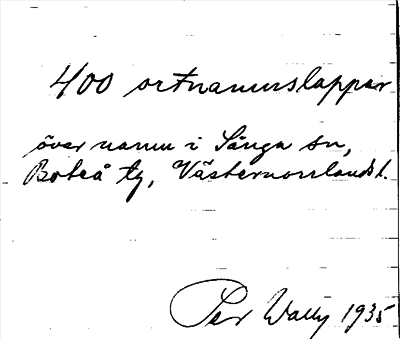 400 ortnamnslappar
över namn i Sånga sn,
Boteå tg, Västernorrlands l.
Per Wally 1935